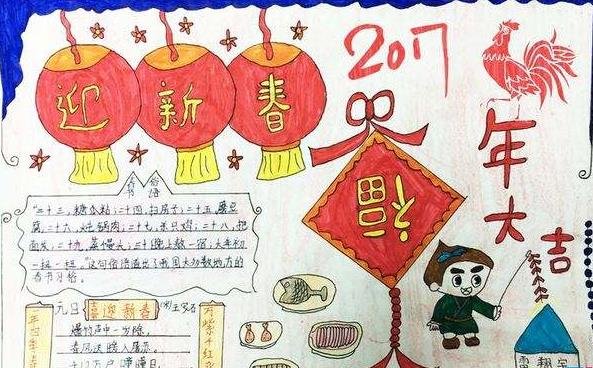 迎新春
2017
年大吉
福
春节
俗语
"二十三,糖瓜粘;二十四,扫房子;二十五,磨豆
腐;二十六,炖锅肉;二十七,杀只鸡;二十八,把
面发;二十九,蒸馒头;三十晚上熬一宿;大年初
一扭一扭。"这句俗语道出了我国大多数地方的
春节习俗。
喜迎新春
元日 (宋)王安石
爆竹声中一岁除,
春风送暖入屠苏。
千门万户曈曈日,
年四季
万紫千红
雷翔宇